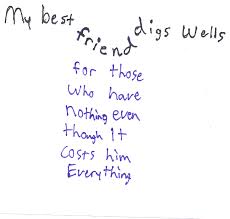 My best friend digs Wells
for those
who have
nothing even
though it
costs him
Everything